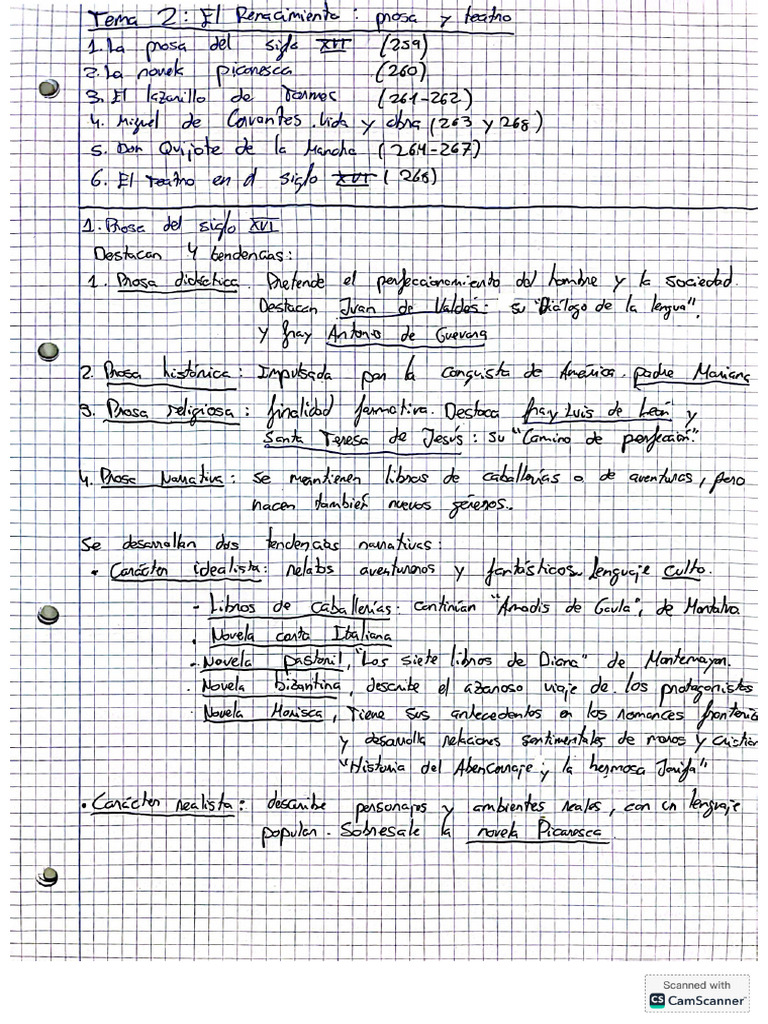 Tema 2: El Renacimiento: prosa y teatro
1. La prosa del siglo XVI (259)
2. La novela picaresca (260)
3. El lazarillo de Tormes (261-262)
4. Miguel de Cervantes. vida y obra (263 y 268)
5. Don Quijote de la Mancha (264-267)
6. El Teatro en el siglo XVI (268)
1. Prosa del siglo XVI
Destacan 4 tendencias:
1. Prosa didáctica. Pretende el perfeccionamiento del hombre y la sociedad.
Destacan Juan de Valdés: su "Diálogo de la lengua",
y fray Antonio de Guevara
2. Prosa histórica: Impulsada por la conquista de América. padre Mariana
3. Prosa religiosa: finalidad formativa. Destaca fray Luis de León y
Santa Teresa de Jesús: su "Camino de perfección"
4. Prosa Narrativa: se mantienen libros de caballerías o de aventuras, pero
nacen también nuevos géneros.
Se desarrollan dos tendencias narrativas:
• Carácter idealista: relatos aventureros y fantásticos. Lenguaje culto.
- Libros de caballerías. Continúan "Amadís de Gaula", de Montalvo.
. Novela corta Italiana
- Novela pastoril, "Los siete libros de Diana" de Montemayor.
. Novela bizantina, describe el azaroso viaje de los protagonistas
. Novela Morisca, Tiene sus antecedentes en los romances fronteris
y desarrolla relaciones sentimentales de moros y cristian
"Historia del Abencerraje y la hermosa Jarifa"
• Carácter realista: describe personajes y ambientes reales, con un lenguaje
popular. Sobresale la novela Picaresca.
Scanned with
CS CamScanner